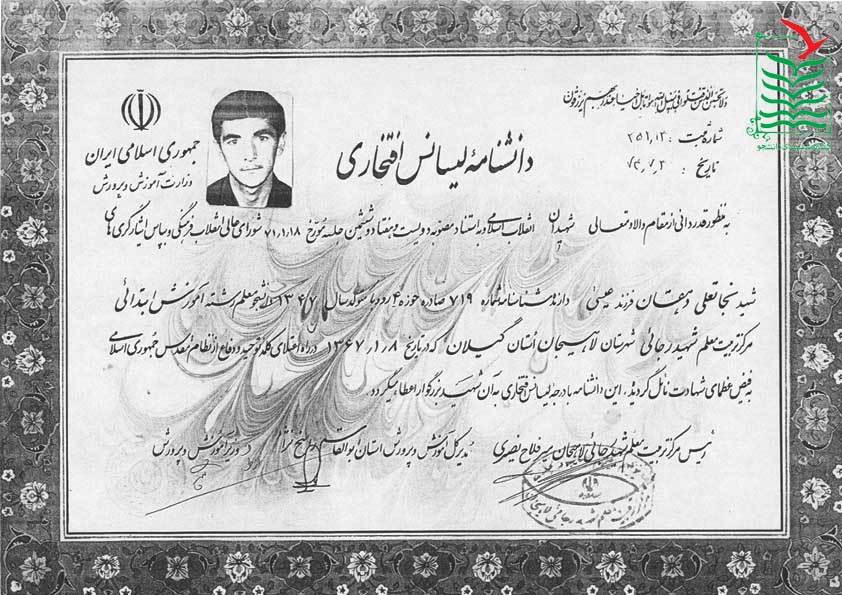 ولا تحسبن الذین قتلوا فی سبیل الله امواتا بل احیاء عند ربهم یرزقون
جمهوری اسلامی ایران
وزارت آموزش و پرورش
دانشنامهٔ لیسانس افتخاری
شماره ثبت : ۲۵۶,۱۳
تاریخ :
به منظور قدردانی از مقام والا و متعالی شهیدان انقلاب اسلامی و به استناد مصوبه دویست و هفتاد و ششمین جلسه مورّخ ۷۱/۱/۱۸ شورای عالی انقلاب فرهنگی و بپاس ایثارگری های
شهید نجاتعلی دهقان فرزند عیسی دارنده شناسنامه شماره ۷۱۹ صادره حوزه ۴ رودبا متولد سال ۱۳۴۷ دانشجو معلم رشته آموزش ابتدائی
مرکز تربیت معلم شهید رجائی شهرستان لاهیجان استان گیلان که در تاریخ ۱۳۶۷/۱/۸ در راه اعتلای کلمه توحید و دفاع از نظام مقدس جمهوری اسلامی
به فیض عظمای شهادت نائل گردید، این دانشنامه با درجه لیسانس افتخاری به آن شهید بزرگوار اعطا میگردد.
رئیس مرکز تربیت معلم شهید رجائی لاهیجان فلاح نصیری
مدیرکل آموزش و پرورش استان ابوالقاسم
وزیر آموزش و پرورش